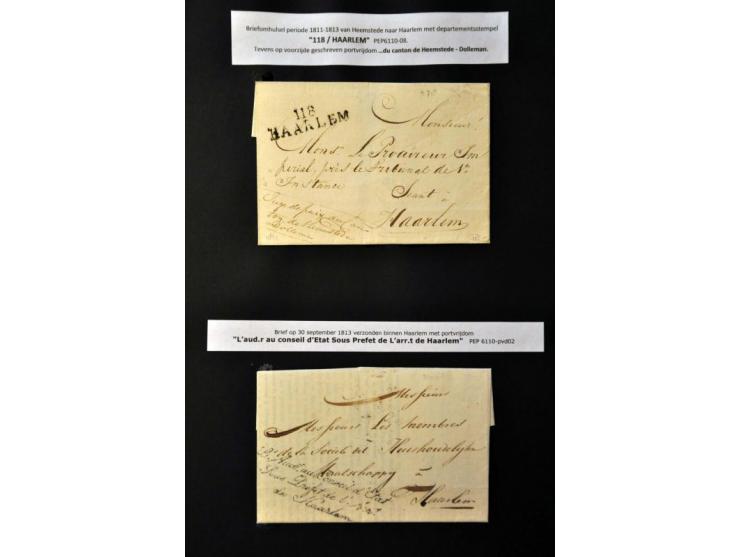 Briefomhulsel periode 1811-1813 van Heemstede naar Haarlem met departementsstempel
"118 / HAARLEM" PEP6110-08.
Tevens op voorzijde geschreven portvrijdom ...du canton de Heemstede - Dolleman.
118
HAARLEM
Monsieur!
Mons. Le Procureur Im
perial, près le Tribunal de
Instance
Seant à
Haarlem
Juge de paix du can
ton de Heemstede
Dolleman
Brief op 30 september 1813 verzonden binnen Haarlem met portvrijdom
"L'aud.r au conseil d'Etat Sous Prefet de L'arr.t de Haarlem" PEP 6110-pvd02
Messieurs
Messieurs Les membres
de la Societé dit Huishoudelijke
Maatschappij à
Haarlem
L'Aud.r au Conseil d'Etat
Sous Prefet de L'arr.t
de Haarlem